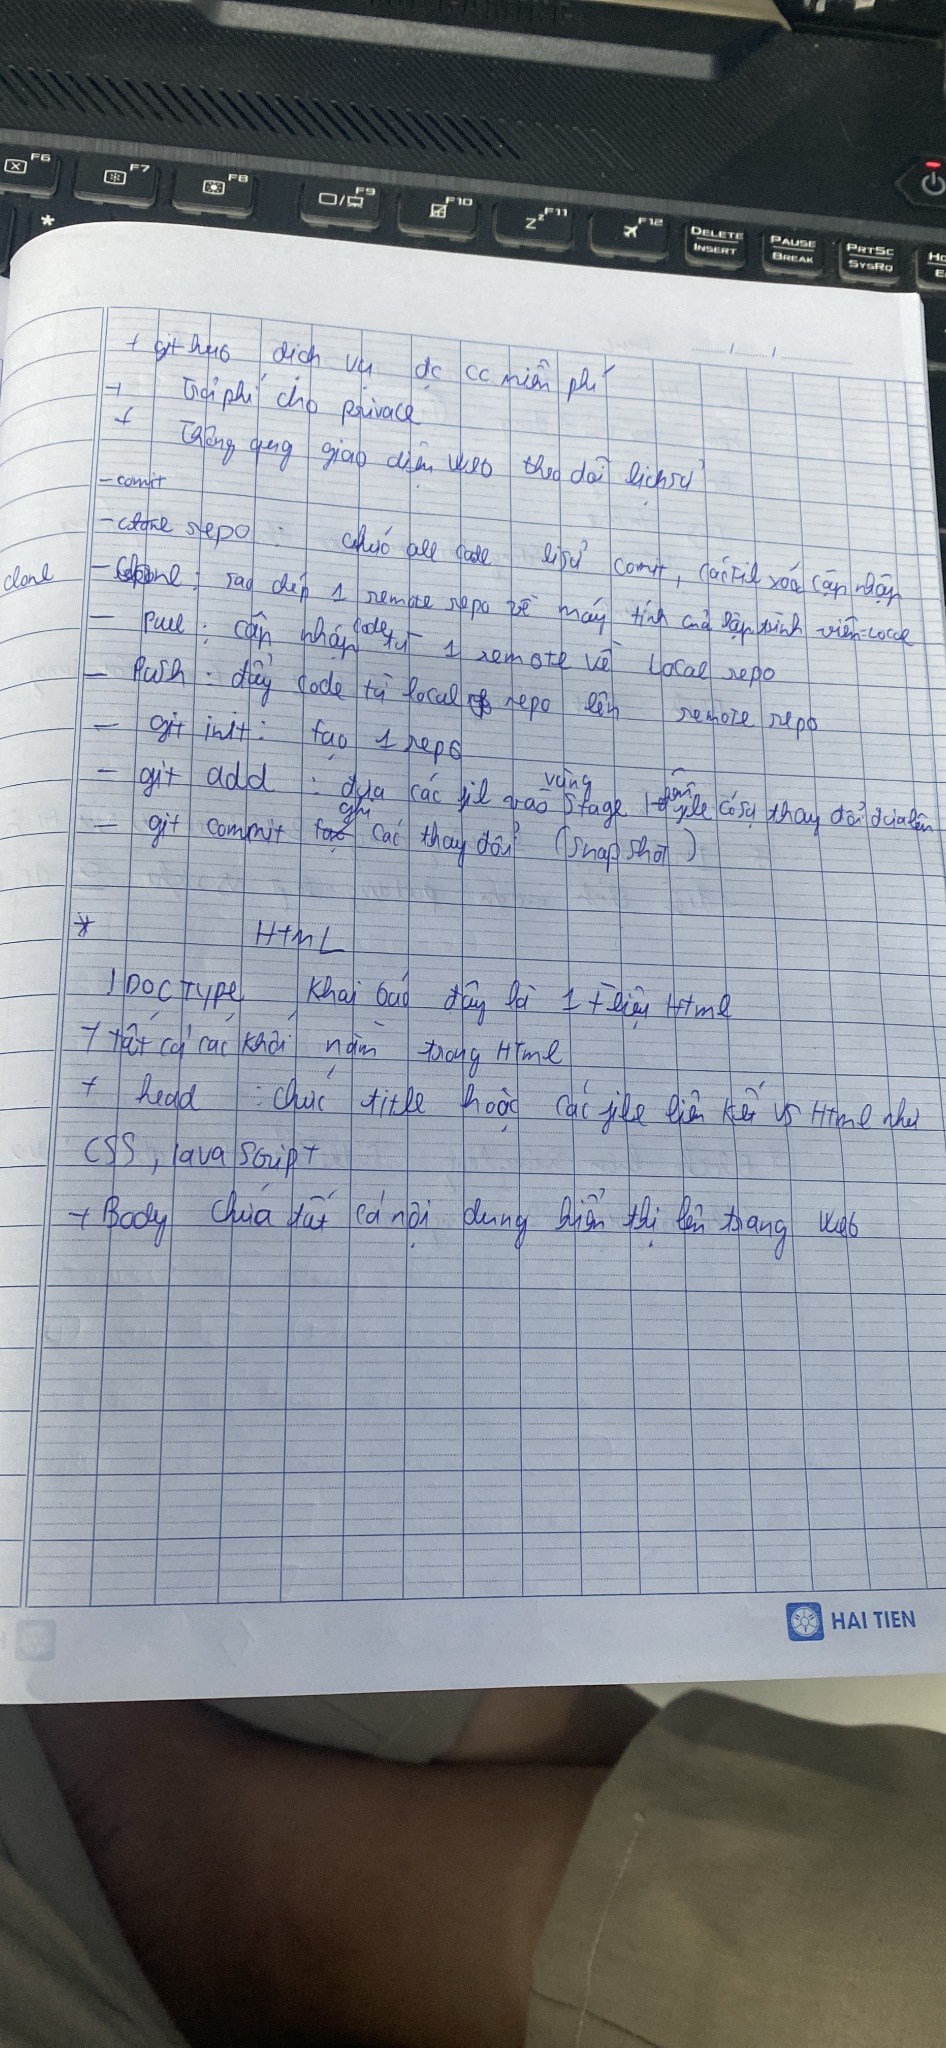 F6 F7 F8 F9 F10 Zz F11 F12 DELETE INSERT PAUSE BREAK PRTSC SYSRQ
*
+ github dịch vụ đc cc miễn phí
+ Trả phí cho private
+ Thông qung giao diện web theo dõi lịch sử
- comit
- repo : chứa all code lịsử comit, các Fil xoá cập nhập
clone - : sao chép 1 remote repo về máy tính củ lập trình viên-local
- Pull : cập nhập code từ 1 remote về Local repo
- Push : đẩy code từ local repo lên remote repo
- git init : tạo 1 repo
- git add : đưa các fil vào vùng Stage file có sự thay đổi đưa lên
- git commit ghi các thay đổi (Snap shot)
* HTML
!DOCTYPE Khai báo đây là 1 Html
+ tất cả các khối nằm trong HTml
+ head : chứa title hoặc các file liên kết vs Html như
CSS, Java Script
+ Body Chứa tất cả nội dung hiển thị lên trang web
HAI TIEN